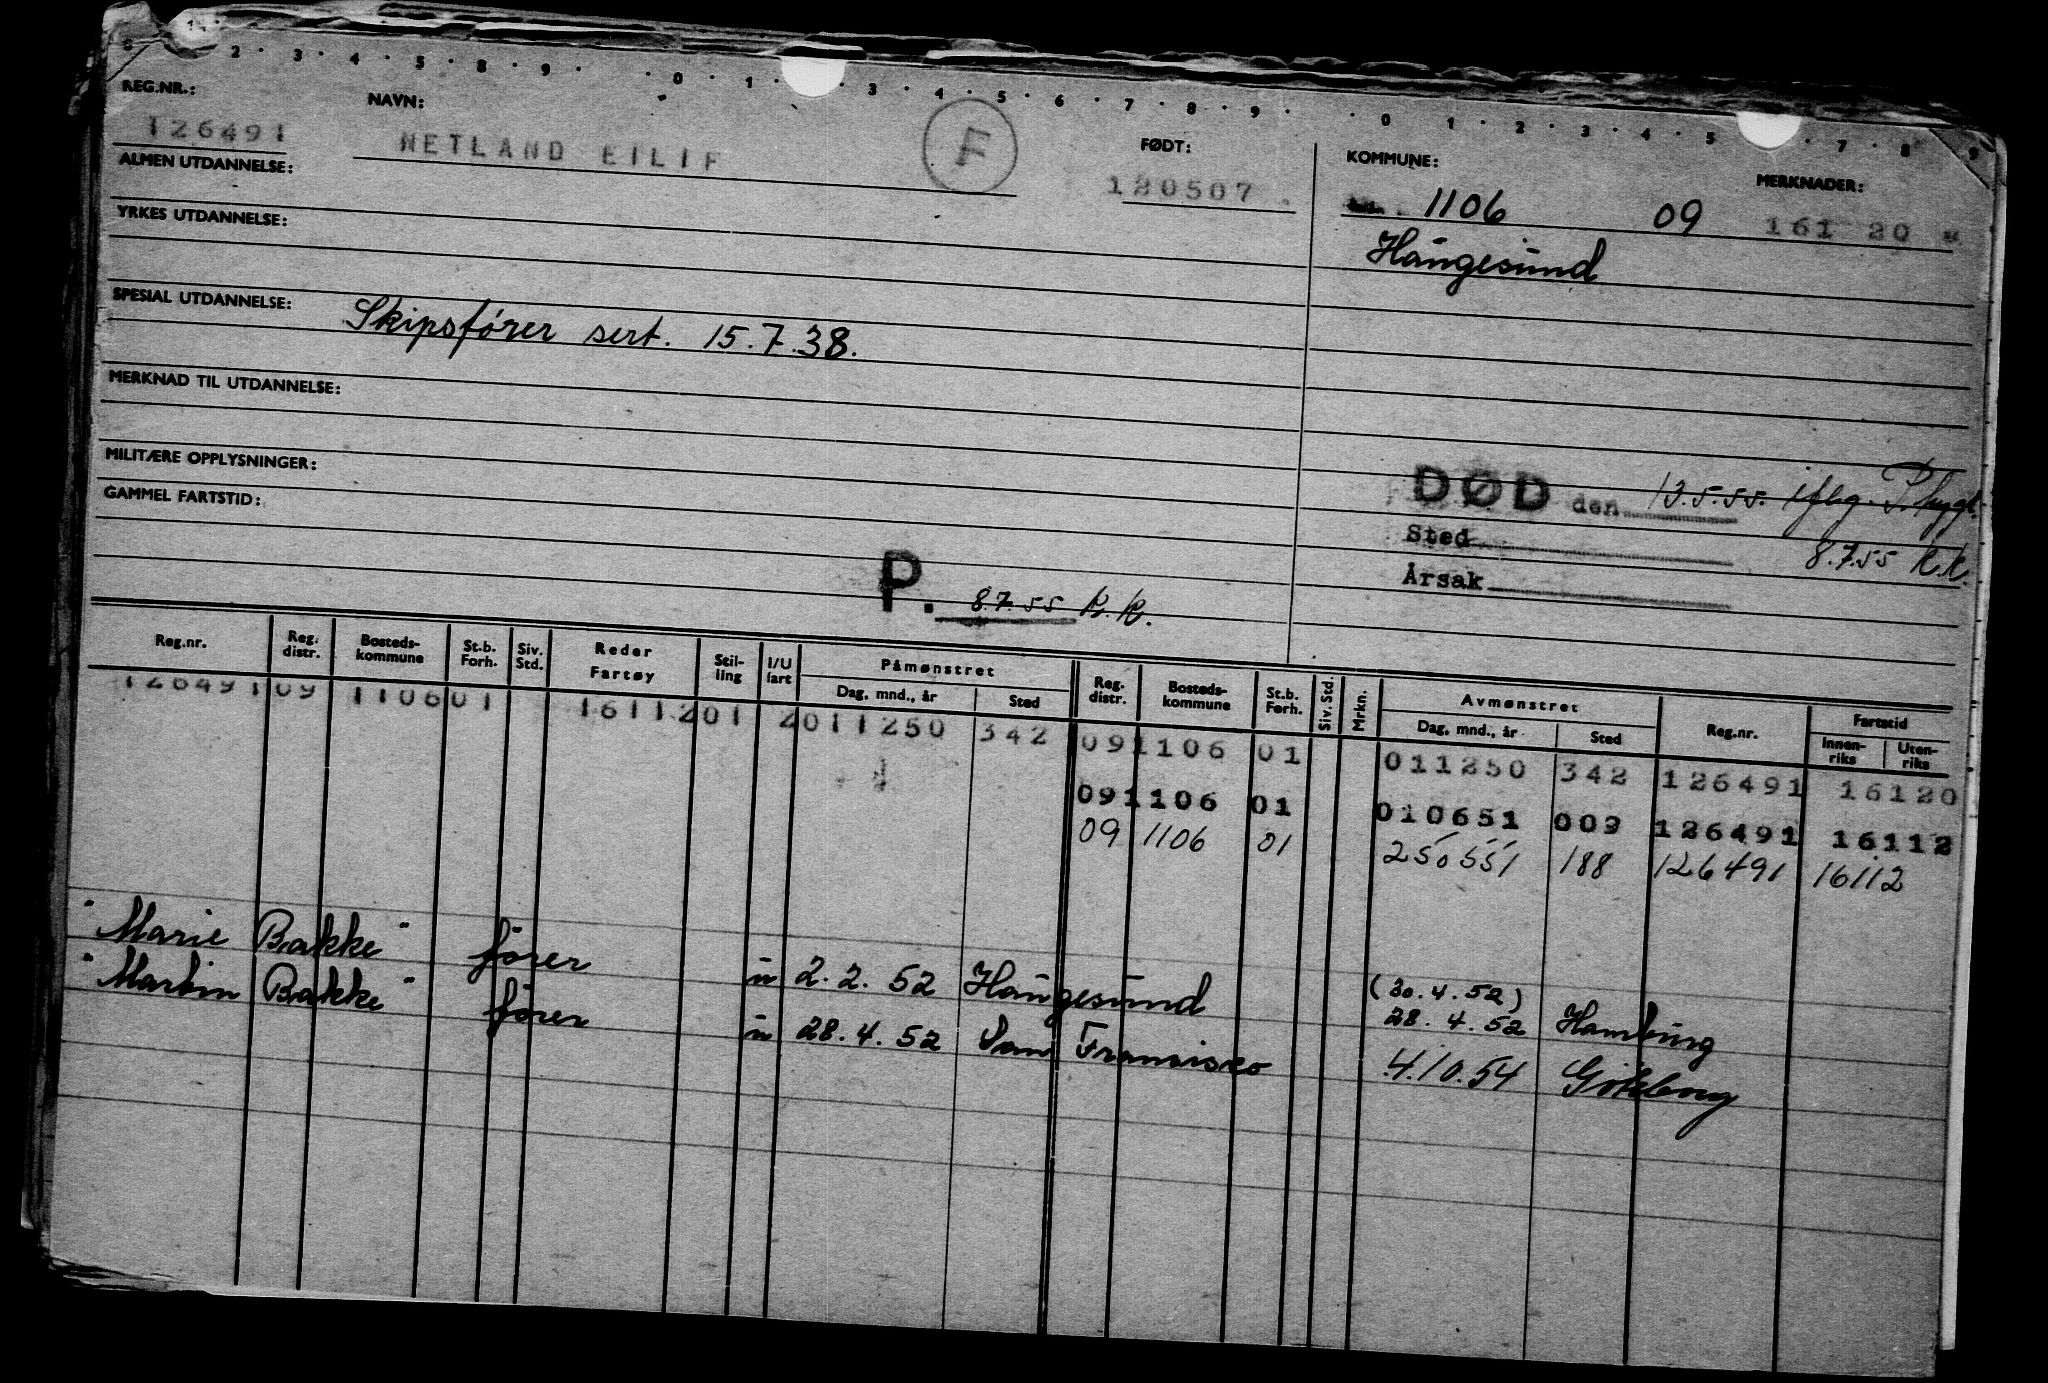 8 · 1 · 2 · 3 · 4 · 5 · 8 · 9 · · 0 · 1 · 3 · 4 · 5 · 6 · 7 · 8 · 9 · · 0 · 1 · 2 · 3 · 4 · 5 · 7 · 8 · 9
REG.NR.: NAVN: FØDT: KOMMUNE: MERKNADER:
126491 NETLAND EILIF F 120507. 1106 09 161 20
ALMEN UTDANNELSE: Haugesund
YRKES UTDANNELSE:
SPESIAL UTDANNELSE: Skipsfører sert. 15.7.38.
MERKNAD TIL UTDANNELSE:
MILITÆRE OPPLYSNINGER:
GAMMEL FARTSTID:
DØD den 13.5.55. iflg.
Sted 8.7.55 K.K.
Årsak
P. 8.7.55 K.K.
Reg.nr. Reg. distr. Bosteds-kommune St.b. Forh. Siv. Std. Reder Fartøy Stil-ling I/U fart Påmønstret Dag, mnd., år Sted Reg. distr. Bosteds-kommune St.b. Forh. Siv. Std. Mrkn. Avmønstret Dag, mnd., år Sted Reg.nr. Fartstid Innen-riks Uten-riks
126491 09 1106 01 1611201 2011250 342 09 1106 01 011250 342 126491 16120
09 1106 01 010651 009 126491 16112
09 1106 01 250551 188 126491 16112
"Marie Bakke" fører u 2.2.52 Haugesund (30.4.52) 28.4.52 Hamburg
"Martin Bakke" fører u 28.4.52 San Francisco 4.10.54 Göteborg